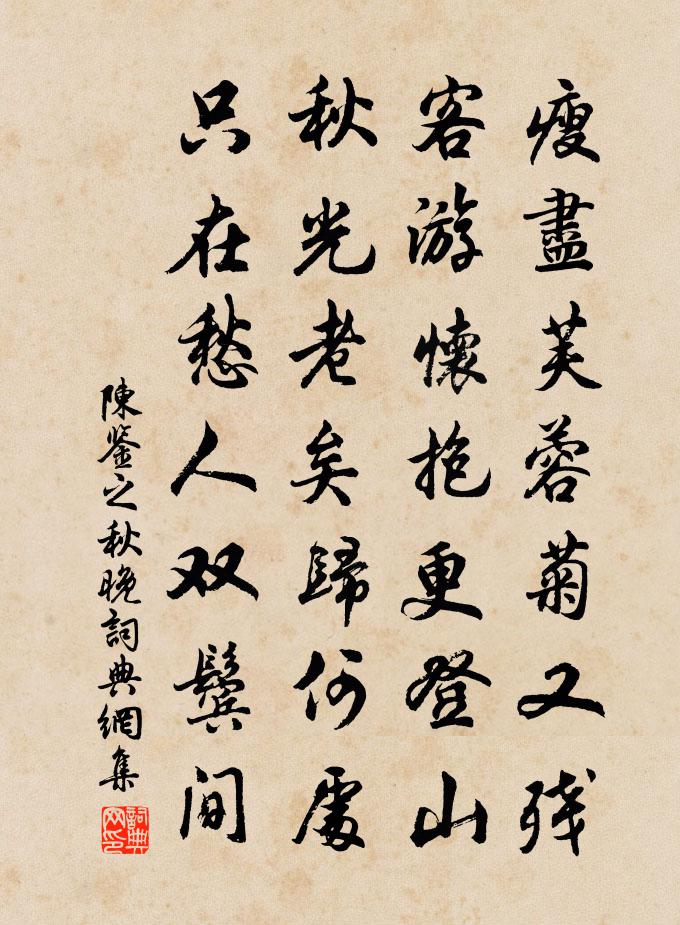 瘦盡芙蓉菊又残
客游懷抱更登山
秋光老矣歸何處
只在愁人双鬓间
陳鉴之秋晚詞典網集
詞典网印